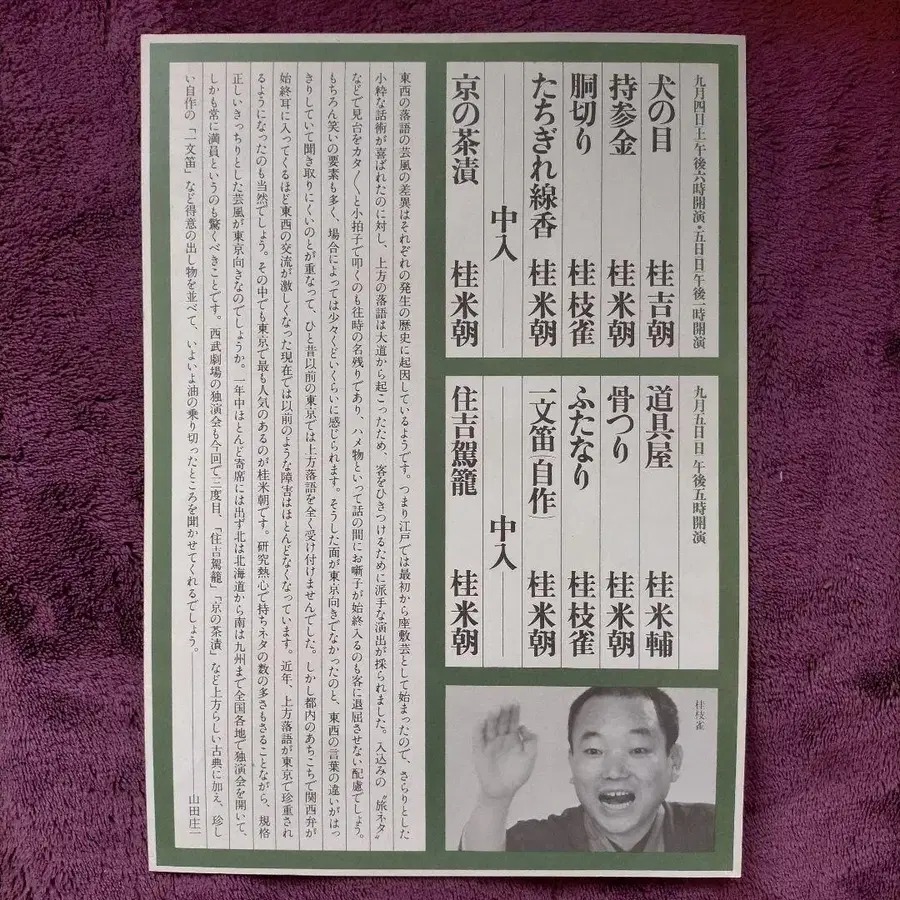 九月四日土午後六時開演・五日日午後一時開演
犬の目 桂吉朝
持参金 桂米朝
胴切り 桂枝雀
たちぎれ線香 桂米朝
中入
京の茶漬 桂米朝
九月五日日 午後五時開演
道具屋 桂米輔
骨つり 桂米朝
ふたなり 桂枝雀
一文笛(自作) 桂米朝
中入
住吉駕籠 桂米朝
桂枝雀
東西の落語の芸風の差異はそれぞれの発生の歴史に起因しているようです。つまり江戸では最初から座敷芸として始まったので、さらりとした
小粋な話術が喜ばれたのに対し、上方の落語は大道から起こったため、客をひきつけるために派手な演出が採られました。入込みの〝旅ネタ〟
などで見台をカタ〱と小拍子で叩くのも往時の名残りであり、ハメ物といって話の間にお囃子が始終入るのも客に退屈させない配慮でしょう。
もちろん笑いの要素も多く、場合によっては少々くどいくらいに感じられます。そうした面が東京向きでなかったのと、東西の言葉の違いがはっ
きりしていて聞き取りにくいのとが重なって、ひと昔以前の東京では上方落語を全く受け付けませんでした。しかし都内のあちこちで関西弁が
始終耳に入ってくるほど東西の交流が激しくなった現在では以前のような障害はほとんどなくなっています。近年、上方落語が東京で珍重され
るようになったのも当然でしょう。その中でも東京で最も人気のあるのが桂米朝です。研究熱心で持ちネタの数の多さもさることながら、規格
正しいきっちりとした芸風が東京向きなのでしょうか。一年中ほとんど寄席には出ず北は北海道から南は九州まで全国各地で独演会を開いて、
しかも常に満員というのも驚くべきことです。西武劇場の独演会も今回で三度目、「住吉駕籠」「京の茶漬」など上方らしい古典に加え、珍し
い自作の「一文笛」など得意の出し物を並べて、いよいよ油の乗り切ったところを聞かせてくれるでしょう。
山田庄一